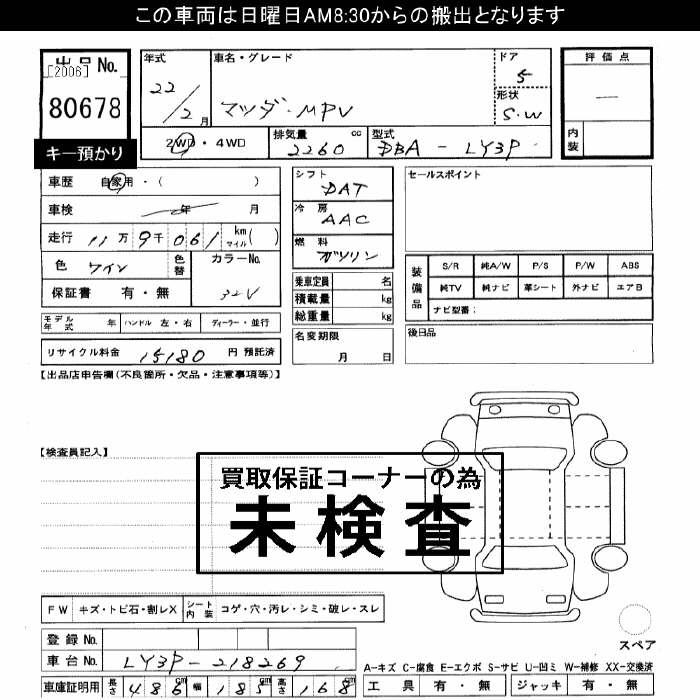 この車両は日曜日AM8:30からの搬出となります
出品 No.
[2006]
80678
キー預かり
年式
22/2月
車名・グレード
マツダ・MPV
ドア
5
形状
S.W
評価点
―
内装
2WD・4WD
排気量 cc
2260
型式
DBA-LY3P
車歴 自家用・( )
車検 年 月
走行 11万9千061 km マイル( )
色 ワイン
色替
カラーNo.
32V
保証書 有・無
シフト
DAT
冷房
AAC
燃料
ガソリン
乗車定員 名
積載量 kg
総重量 kg
名変期限
月 日
セールスポイント
装備品
S/R 純A/W P/S P/W ABS
純TV 純ナビ 革シート 外ナビ エアB
ナビ型番:
後日品
モデル年式 年 ハンドル 左・右 ディーラー・並行
リサイクル料金 15180 円 預託済
【出品店申告欄(不良箇所・欠品・注意事項等)】
【検査員記入】
買取保証コーナーの為
未検査
FW キズ・トビ石・割レX シート内装 コゲ・穴・汚レ・シミ・破レ・スレ
登録 No.
車台 No. LY3P-218269
車庫証明用 長さ 486cm 幅 185cm 高さ 168cm
スペア
A-キズ C-腐食 E-エクボ S-サビ U-凹ミ W-補修 XX-交換済
工具 有・無 ジャッキ 有・無